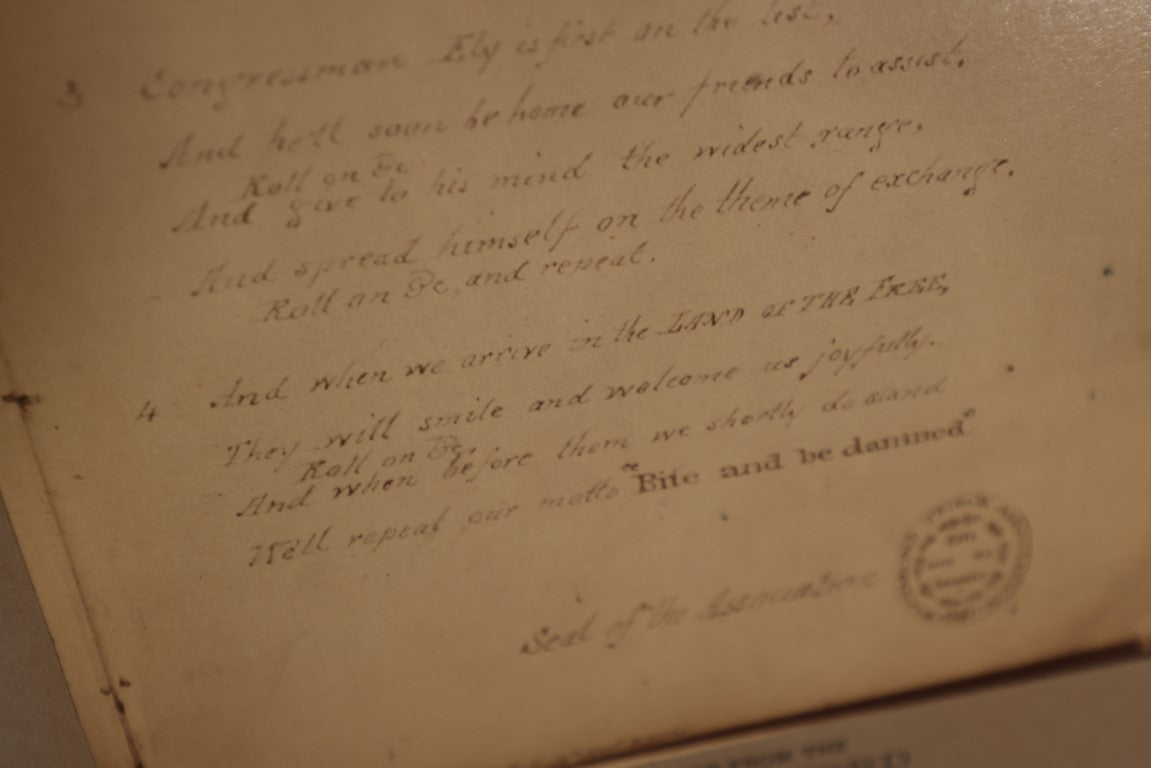 3 Congressman Ely is first on the list,
And he'll soon be home our friends to assist.
Roll on &c
And give to his mind the widest range,
And spread himself on the theme of exchange.
Roll on &c, and repeat.
4 And when we arrive in the LAND OF THE FREE,
They will smile and welcome us joyfully.
Roll on &c.
And when before them we shortly do stand
We'll repeal our motto "Bite and be damned"
Seal of the Association
PRISON ASSOCIATION
FROM THE